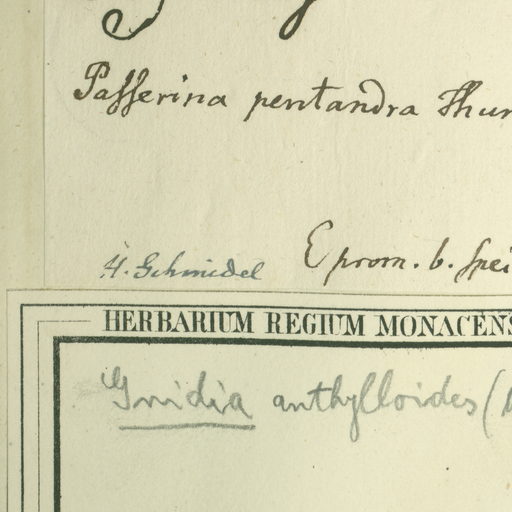 Passerina pentandra Thun
H. Schmidel E prom. b. spei
HERBARIUM REGIUM MONACENS
Gnidia anthylloides (